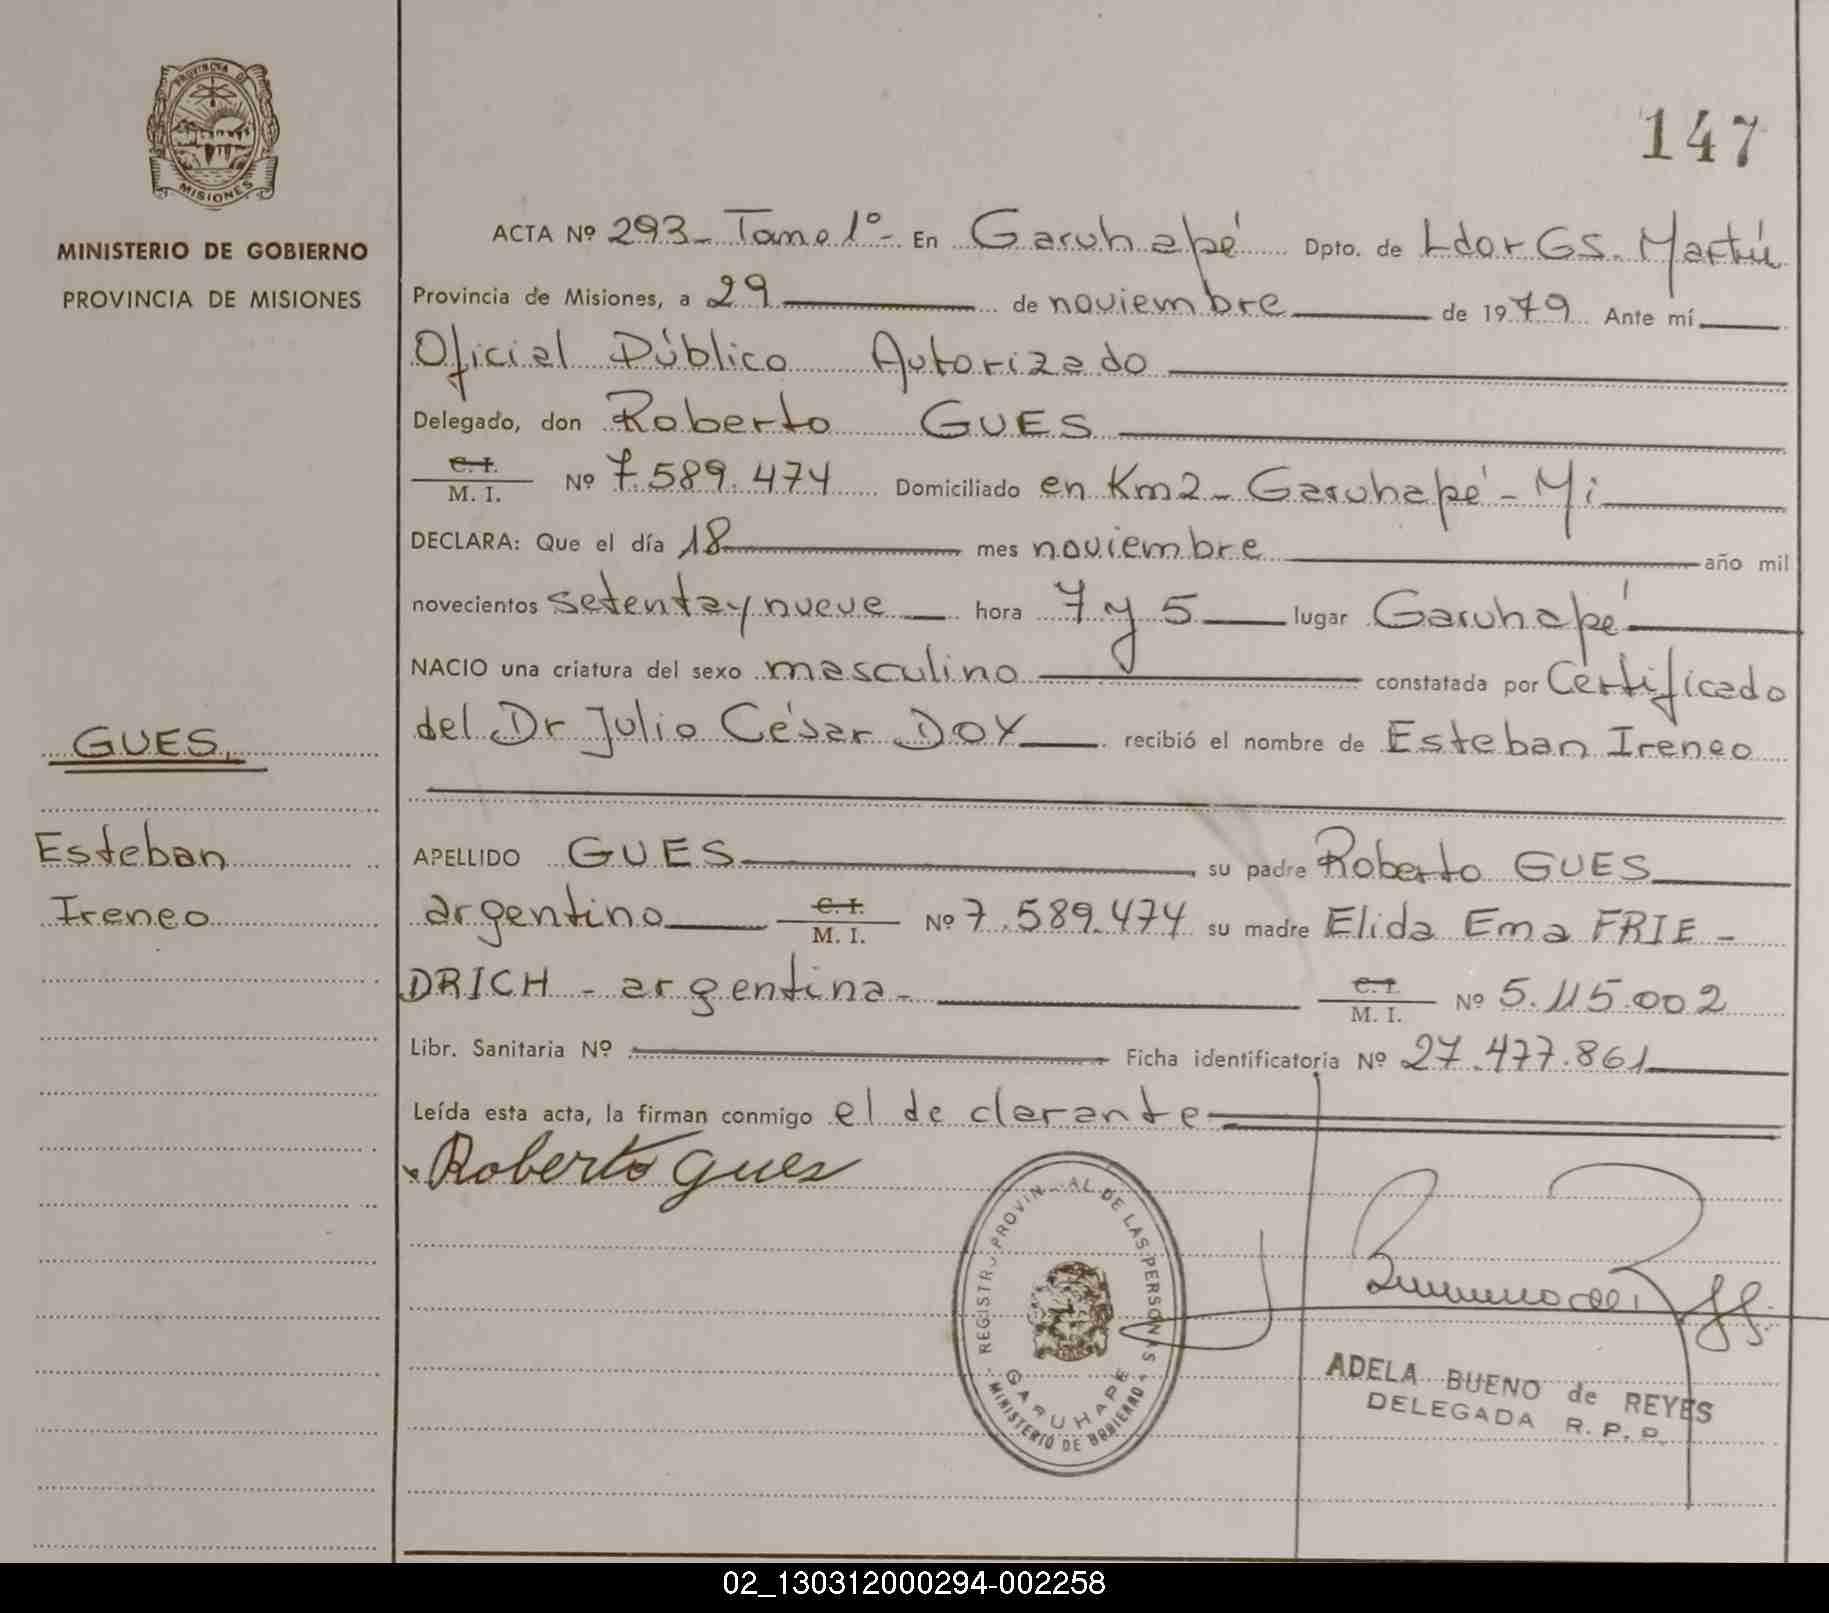 PROVINCIA DE
MISIONES
MINISTERIO DE GOBIERNO
PROVINCIA DE MISIONES
147
ACTA Nº 293 - Tomo 1º - En Garuhapé Dpto. de Ldor GS. Martín
Provincia de Misiones, a 29 de noviembre de 1979 Ante mí
Oficial Público Autorizado
Delegado, don Roberto GUES
C. I.
M. I. Nº 7.589.474 Domiciliado en Km2 - Garuhapé - Mi
DECLARA: Que el día 18 mes noviembre año mil
novecientos setenta y nueve hora 7 y 5 lugar Garuhapé
NACIO una criatura del sexo masculino constatada por Certificado
del Dr Julio César DOY recibió el nombre de Esteban Ireneo
GUES,
Esteban
Ireneo
APELLIDO GUES su padre Roberto GUES
argentino C. I.
M. I. Nº 7.589.474 su madre Elida Ema FRIE -
DRICH - argentina - C. I.
M. I. Nº 5.115.002
Libr. Sanitaria Nº Ficha identificatoria Nº 27.477.861
Leída esta acta, la firman conmigo el declarante
Roberto Gues
REGISTRO PROVINCIAL DE LAS PERSONAS
GARUHAPE
MINISTERIO DE GOBIERNO
ADELA BUENO de REYES
DELEGADA R. P. P.
02_130312000294-002258